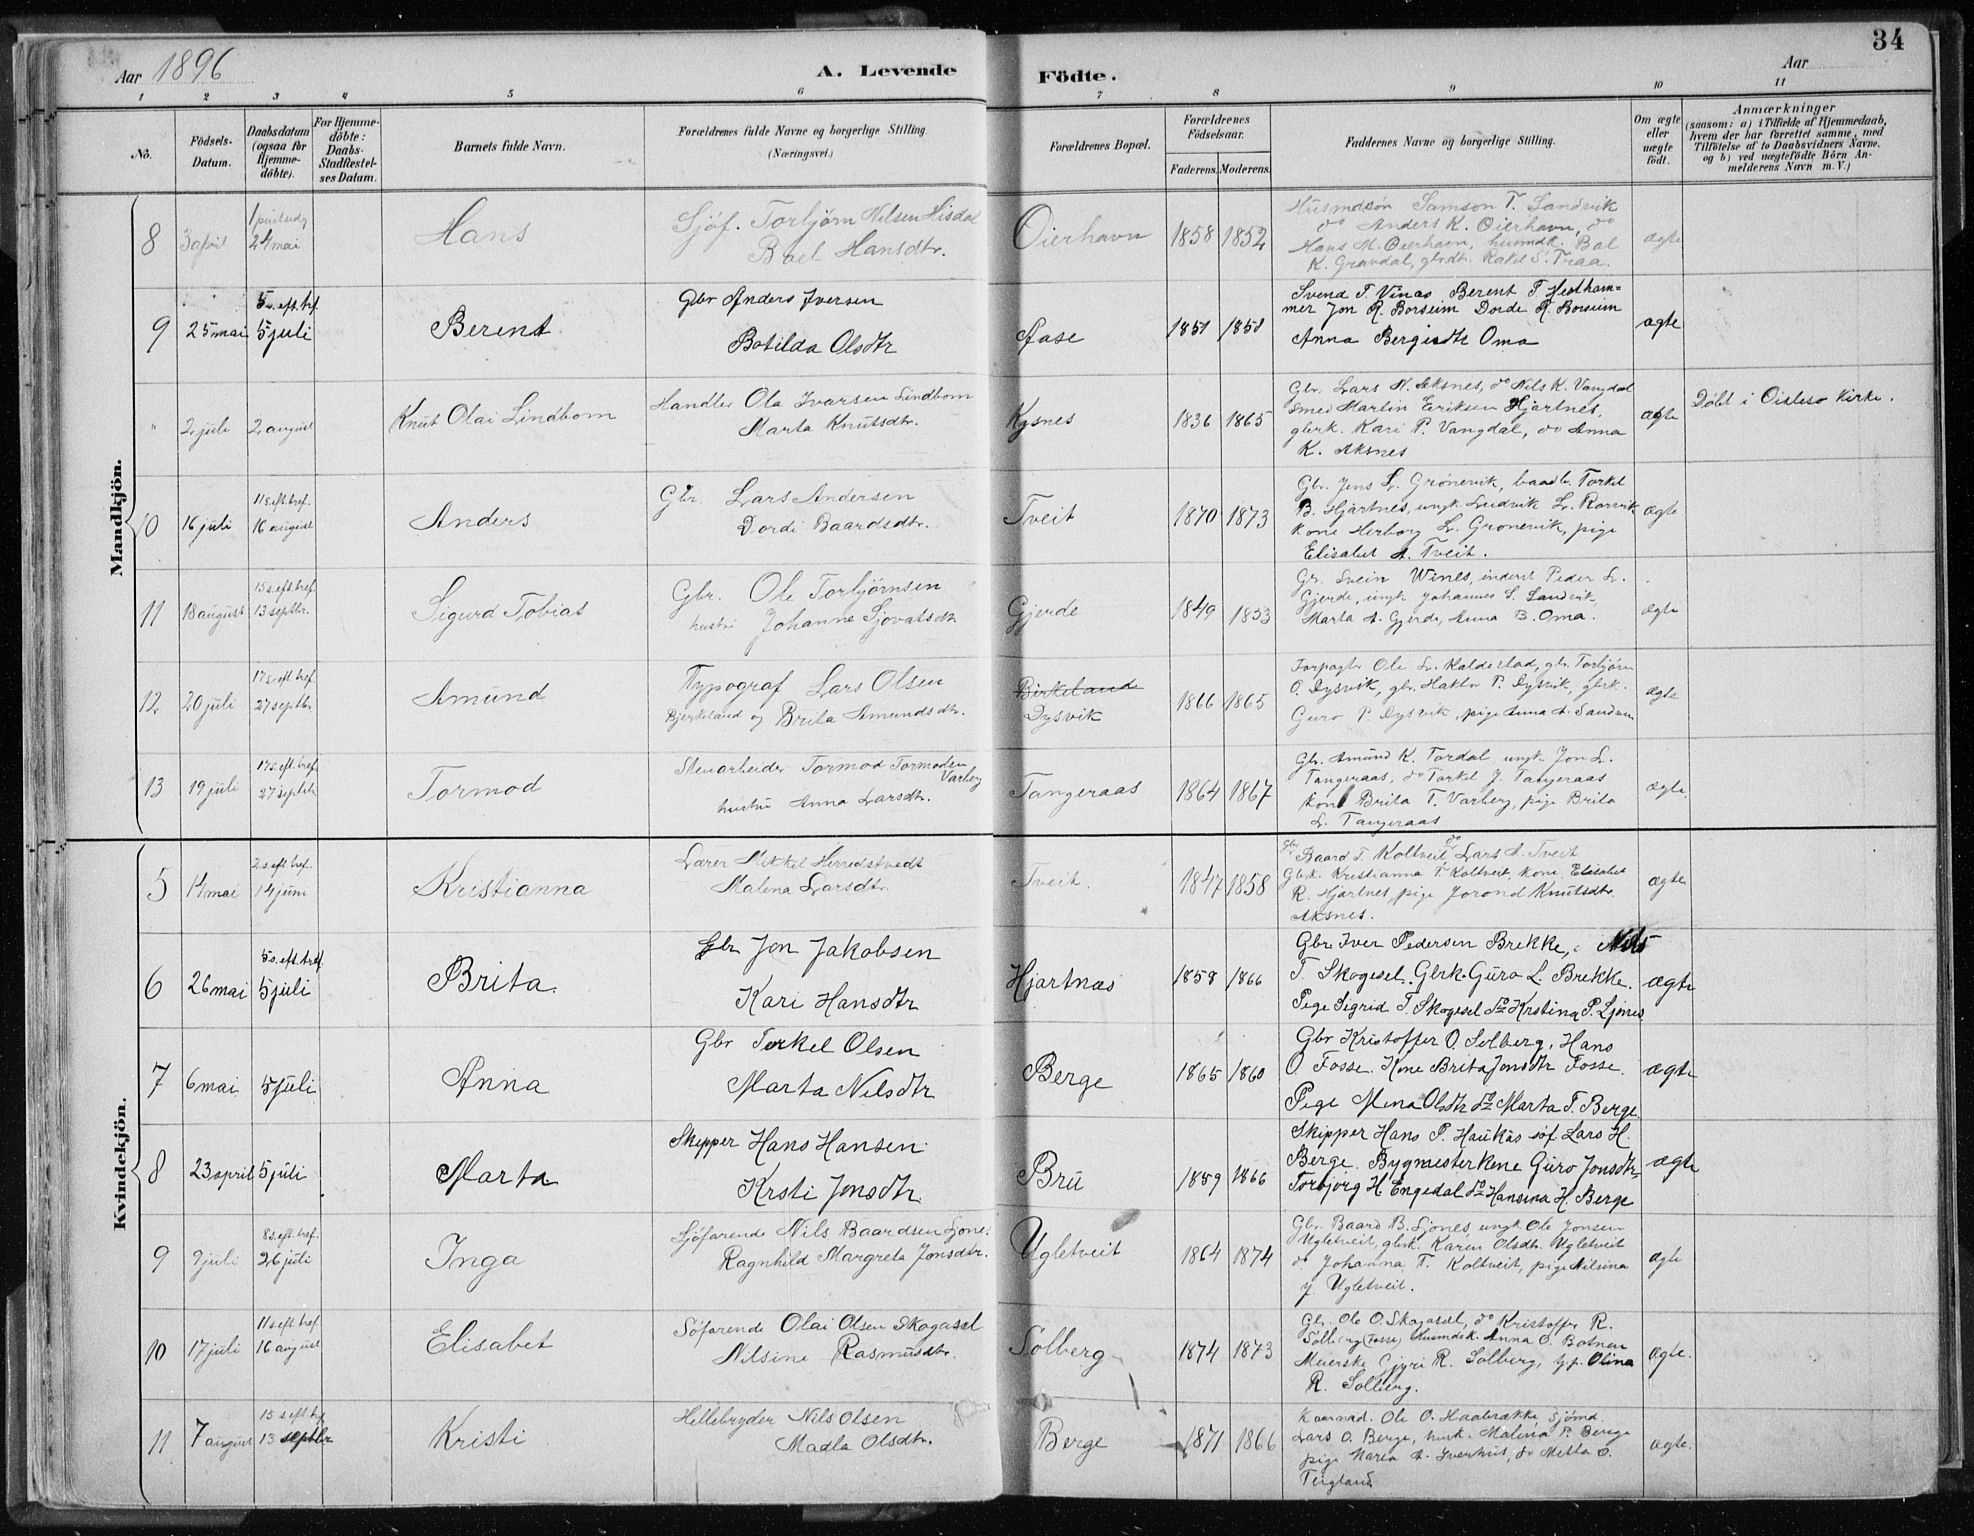 34
Aar 1896
A. Levende Födte.
Aar
1 2 3 4 5 6 7 8 9 10 11
No.
Födsels-Datum.
Daabsdatum (ogsaa for Hjemme-döbte).
For Hjemme-döbte: Daabs-Stadfæstel-ses Datum.
Barnets fulde Navn.
Forældrenes fulde Navne og borgerlige Stilling. (Næringsvei.)
Forældrenes Bopæl.
Forældrenes Födselsaar.
Faderens. Moderens.
Faddernes Navne og borgerlige Stilling.
Om ægte eller uægte födt.
Anmærkninger
(saasom: a) i Tilfælde af Hjemmedaab, hvem der har forrettet samme, med Tilföielse af to Daabsvidners Navne, og b) ved uægtefödte Börn An-melderens Navn m. V.)
Mandkjön.
8 3 april 24 mai Hans
Sjöf. Torbjörn Nilsen Hisdal
Boel Hansdtr.
Oierhavn 1858 1852
Husmdsön Samson T. Sandvik
do Anders K. Oierhavn, do
Hans M. Oierhavn, husmdk. Bol
K. Gravdal, gbrdtr. Rakel S. Traa.
ægte
5 s. eft. tref.
9 25 mai 5 juli Berent
Gbr Anders Iversen
Botilda Olsdtr
Aase 1851 1858
Svend T. Vinas Berent T. Hestham=
mer Jon R. Borsum Dorde R. Borsum
Anna Bergisdtr Oma
ægte
" 2 juli 2 august Knut Olai Lindbom
Handler Ola Ivarsen Lindbom
Marta Knutsdtr.
Kysnes 1836 1865
Gbr. Lars N. Aksnes, do Nils K. Vangdal
smed Martin Eriksen Hjartnes,
gbrk. Kari P. Vangdal, do Anna
K. Aksnes
ægte
Döbt i Oistesø Kirke.
11 s. eft. tref.
10 16 juli 16 august Anders
Gbr. Lars Andersen
Dordi Baardsdtr.
Tveit 1870 1873
Gbr. Jens L. Grónevik, baadb. Torkel
B. Hjartnes, ungk. Ludvik L. Rørvik
kone Herborg L. Gronevik, pige
Elisabet A. Tveit.
ægte
15 s. eft. tref.
11 18 august 13 septbr. Sigurd Tobias
Gbr. Ole Torbjørnsen
hustru Johanne Sjovatsdtr
Gjerde 1849 1853
Gbr. Svein Wines, inderst Peder L.
Gjerde, ungk Johannes S. Sandvik,
Marta A. Gjerde, Anna B. Oma.
ægte
17 s. eft. tref.
12 20 juli 27 septbr. Amund
Typograf Lars Olsen
Bjerkeland og Brita Amundsdtr.
Birkeland
Dysvik 1866 1865
Forpagter Ole L. Kaldestad, gbr. Torbjörn
O. Dysvik, gbr. Haktor P. Dysvik, gbrk.
Guro P. Dysvik, pige Anna A. Sandven
ægte
17 s. eft. tref.
13 19 juli 27 septbr Tormod
Stenarbeider Tormod Tormodsen
Varberg
hustru Anna Larsdtr.
Tangeraas 1864 1867
Gbr. Amund K. Tordal ungk. Jon L.
Tangeraas, do Torkel J. Tangeraas
kone Brita T. Varberg, pige Brita
L. Tangeraas
ægte.
Kvindekjön.
2 s. eft. tref.
5 14 mai 14 juni Kristianna
Lærer Mikkel Herredstvedt
Malena Larsdtr
Tveit. 1847 1858
Gbr. Baard T. Koltveit, do Lars A. Tveit
Gbrk. Kristianna T. Koltveit, kone Elisabet
R. Hjartnes, pige Jorond Knutsdtr.
Aksnes.
ægte
5 s. eft. tref.
6 26 mai 5 juli Brita.
Gbr Jon Jakobsen
Kari Hansdtr
Hjartnæs 1858 1866
Gbr Iver Pedersen Brekke, Nils
T. Skogesel. Gbrk. Guro L. Brekke.
Pige Sigrid T. Skogesel do Krstina P. Ljones
ægte
7 6 mai 5 juli Anna
Gbr Torkel Olsen
Marta Nilsdtr
Berge 1865 1860
Gbr Kristoffer O. Solberg. Hans
O. Fosse. Kone Brita Jonsdtr Fosse.
Pige Mena Olsdtr do Marta T. Berge.
ægte
8 23 april 5 juli Marta
Skipper Hans Hansen
Krsti Jonsdtr.
Brü 1859 1866
Skipper Hans P. Haukås søf. Lars H.
Berge. Bygmesterkone Guro Jonsdtr
Torbjorg H. Engedal do Hansina H. Berge
ægte
8 s. eft. tref.
9 9 juli 26 juli Inga
Sjöfarende Nils Baardsen Ljones
Ragnhild Margreta Jonsdtr.
Ugletveit 1864 1874
Gbr. Baard B. Ljones, ungk Ole Jonsen
Ugletveit, gbrk. Karen Olsdtr. Ugletveit
do Johanna T. Koltveit, pige Nilsina
J. Ugletveit.
ægte
11 s. eft. tref.
10 17 juli 16 august Elisabet
Söfarende Olai Olsen Skogasel
Nilsine Rasmusdtr.
Solberg 1874 1873
Gbr. Ole O. Skogasel, do Kristoffer R.
Solberg (Fosse) Husmdk. Anna O. Botnen
Meierske Gjyri R. Solberg, Olina
R. Solberg.
ægte.
15 s eft tref
11 7 august 13 septbr Kristi
Hellebryder Nils Olsen
Madla Olsdtr.
Berge 1871 1866
Ole O. Haabrække, sjömd.
Lars O. Berge, Malina P. Berge
pige Marta A. do Metta O.
Teigland
ægte.